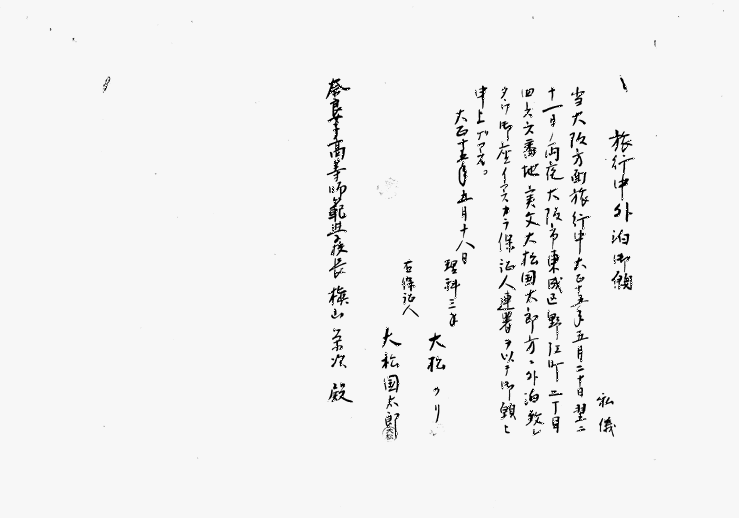 旅行中外泊御願
私儀
当大阪方面旅行中大正十五年五月二十日翌二
十一日ノ両夜大阪市東成区野江町二丁目
四六六番地実父大松国太郎方ニ外泊致し
度御座イマスカラ保証人連署ヲ以テ御願ヒ
申上ゲマス。
大正十五年五月十八日
理科三年
大松のり
右保証人
大松国太郎
奈良女子高等師範学校長 槇山栄次 殿